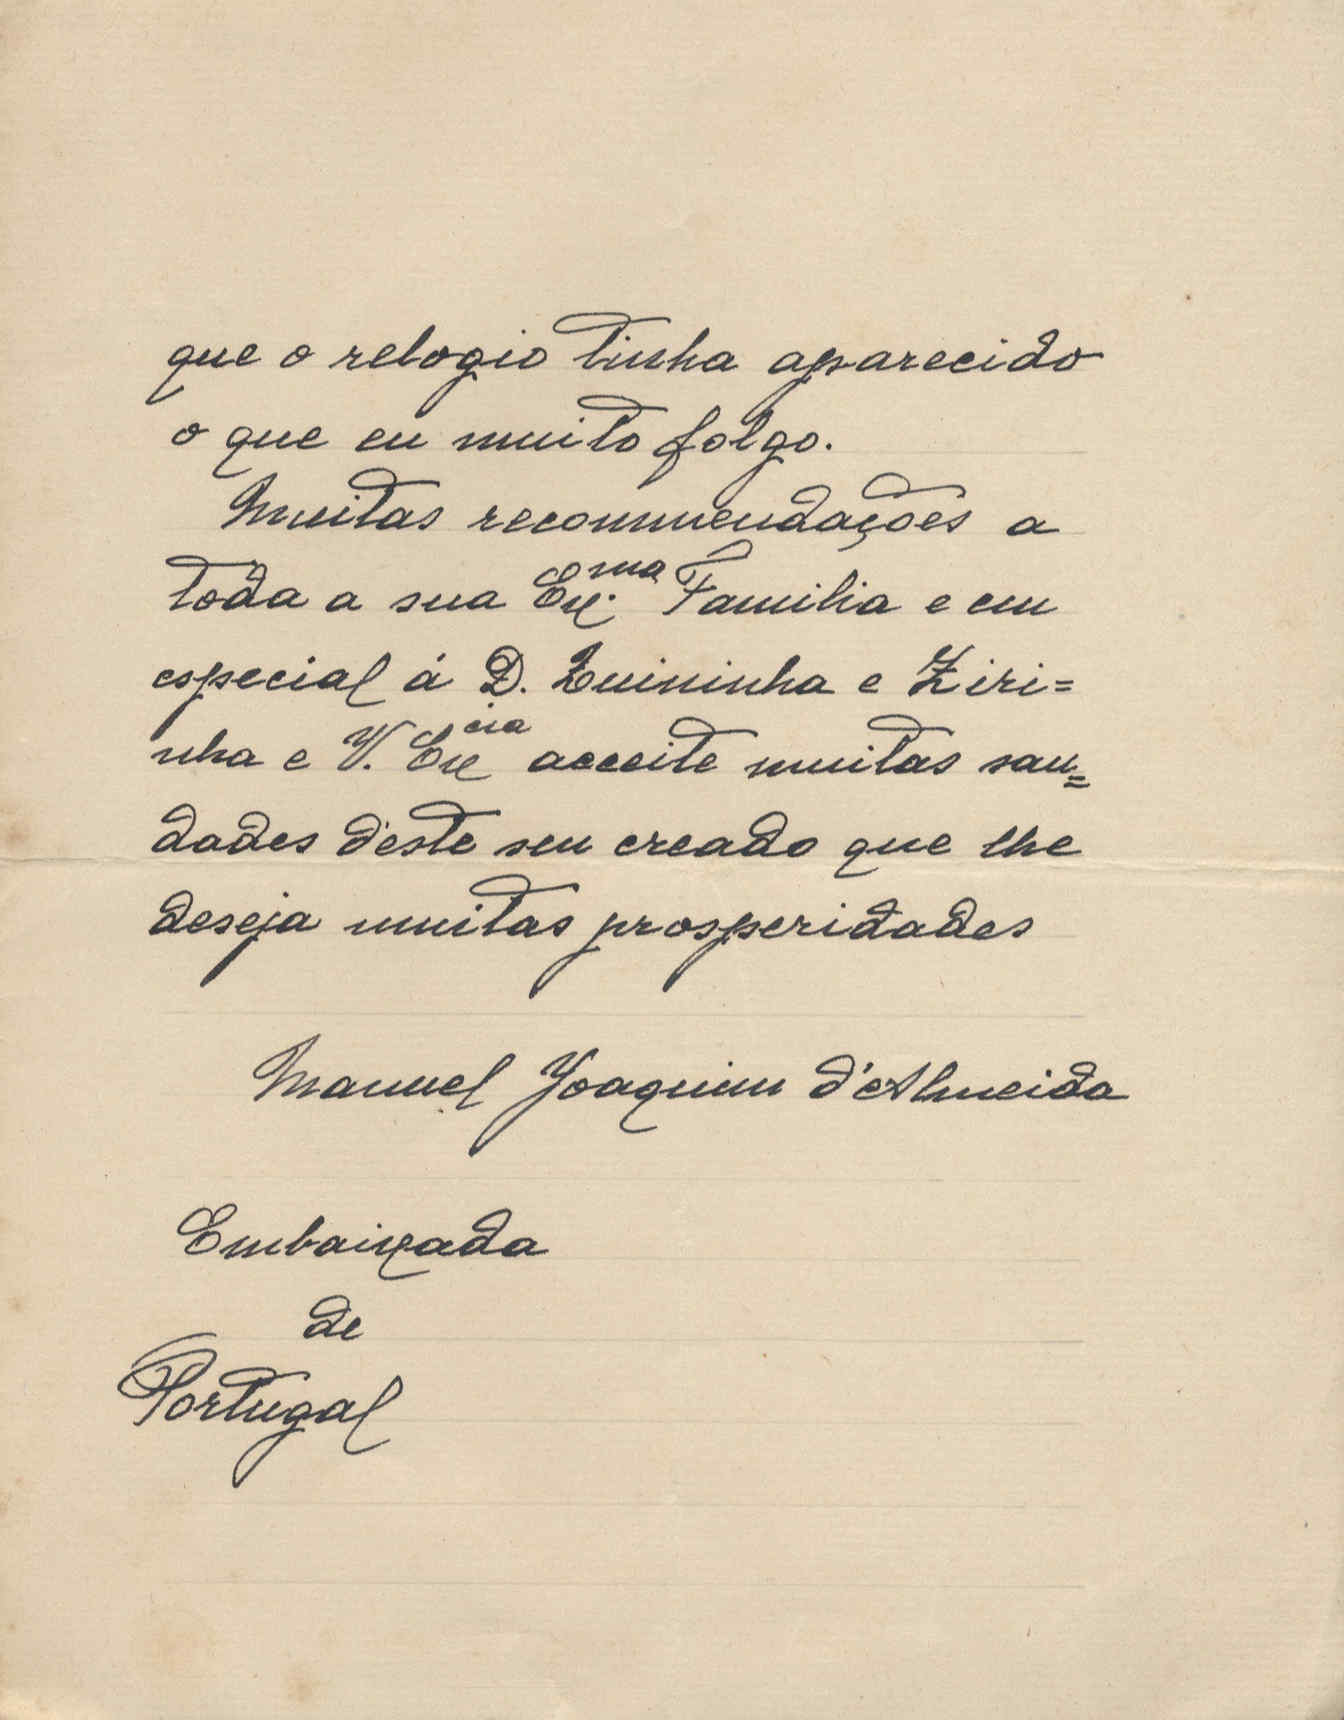 que o relogio tinha aparecido
o que eu muito folgo.
Muitas recommendações a
toda a sua Ex.ma Familia e em
especial á D. Zuininha e Ziri=
nha e V. Excia acceite muitas sau=
dades d'este seu creado que lhe
deseja muitas prosperidades
Manuel Joaquim d'Almeida
Embaixada
de
Portugal